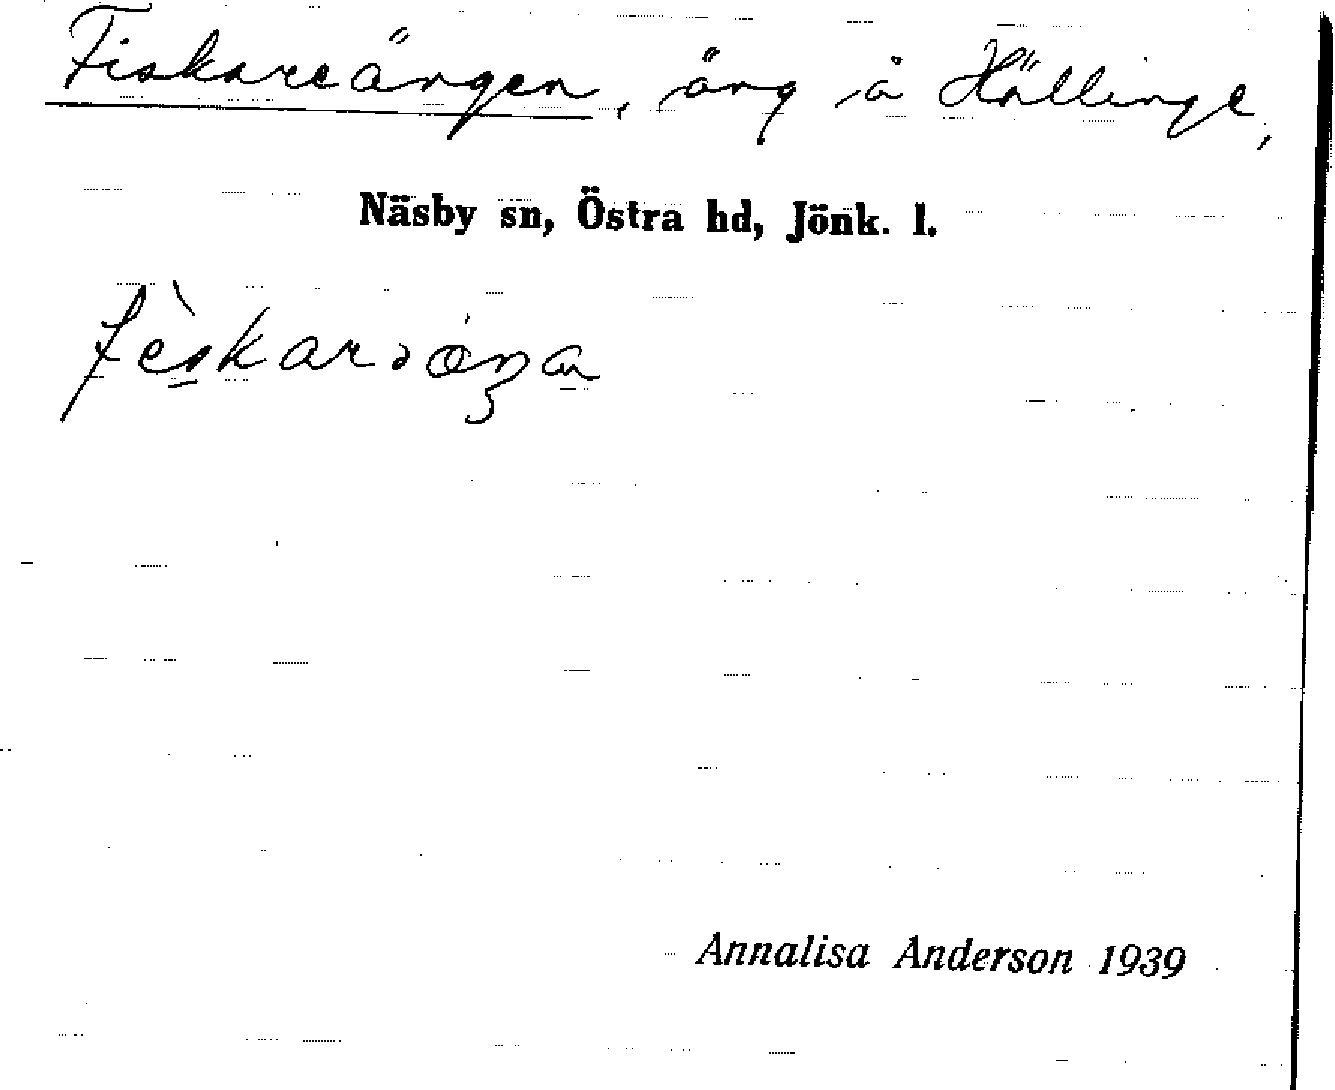 Fiskareängen, äng å Hällinge,
Näsby sn, Östra hd, Jönk. l.
Annalisa Anderson 1939